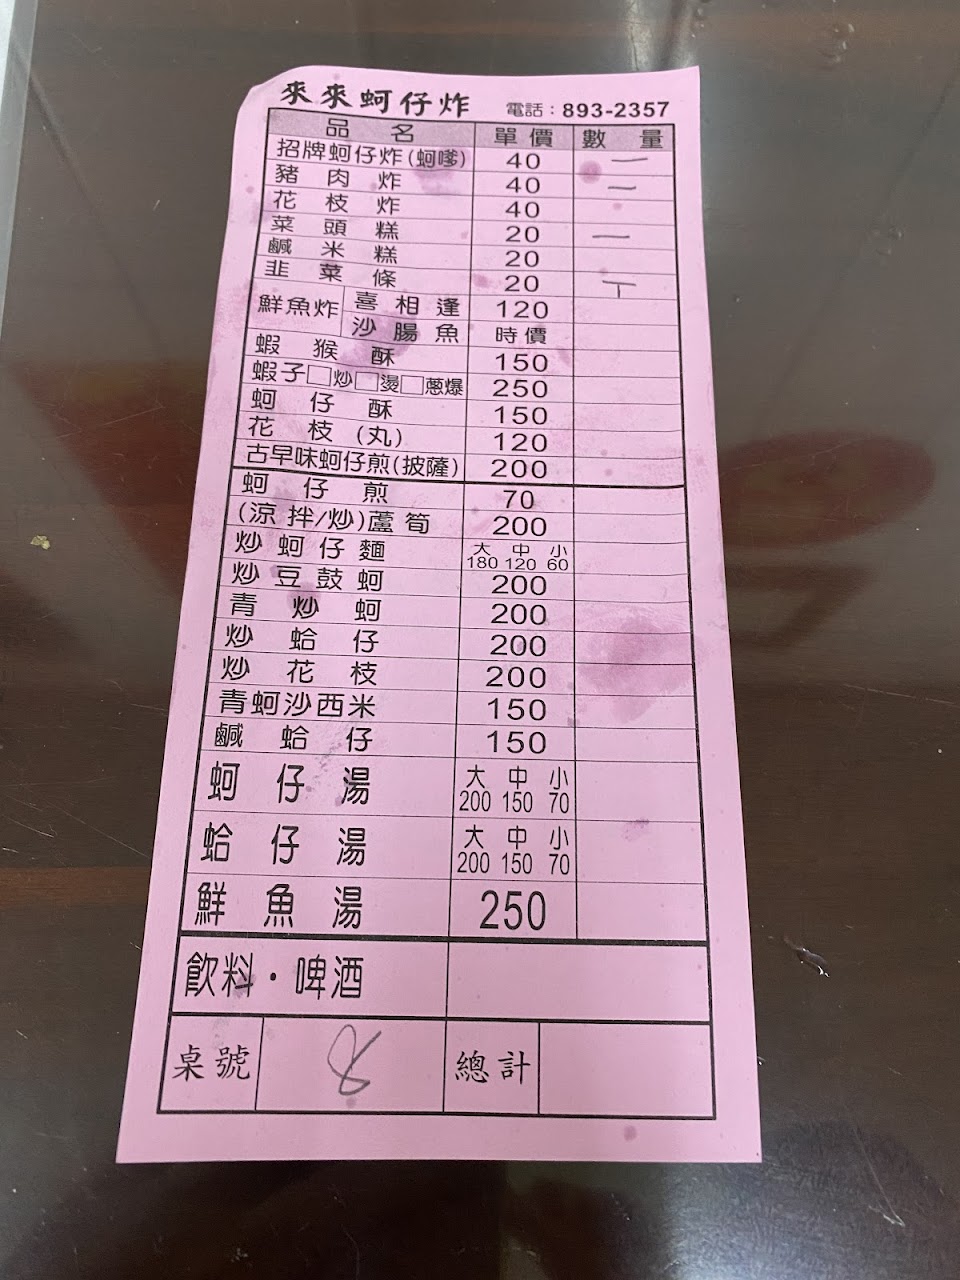 來來蚵仔炸 電話：893-2357
品名 單價 數量
招牌蚵仔炸(蚵嗲) 40 一
豬肉炸 40 一
花枝炸 40
菜頭糕 20 一
鹹米糕 20
韭菜條 20 丅
鮮魚炸 喜相逢 120
沙腸魚 時價
蝦猴酥 150
蝦子□炒□燙□蔥爆 250
蚵仔酥 150
花枝(丸) 120
古早味蚵仔煎(披薩) 200
蚵仔煎 70
(涼拌/炒)蘆筍 200
炒蚵仔麵 大 中 小
180 120 60
炒豆鼓蚵 200
青炒蚵 200
炒蛤仔 200
炒花枝 200
青蚵沙西米 150
鹹蛤仔 150
蚵仔湯 大 中 小
200 150 70
蛤仔湯 大 中 小
200 150 70
鮮魚湯 250
飲料·啤酒
桌號 8 總計